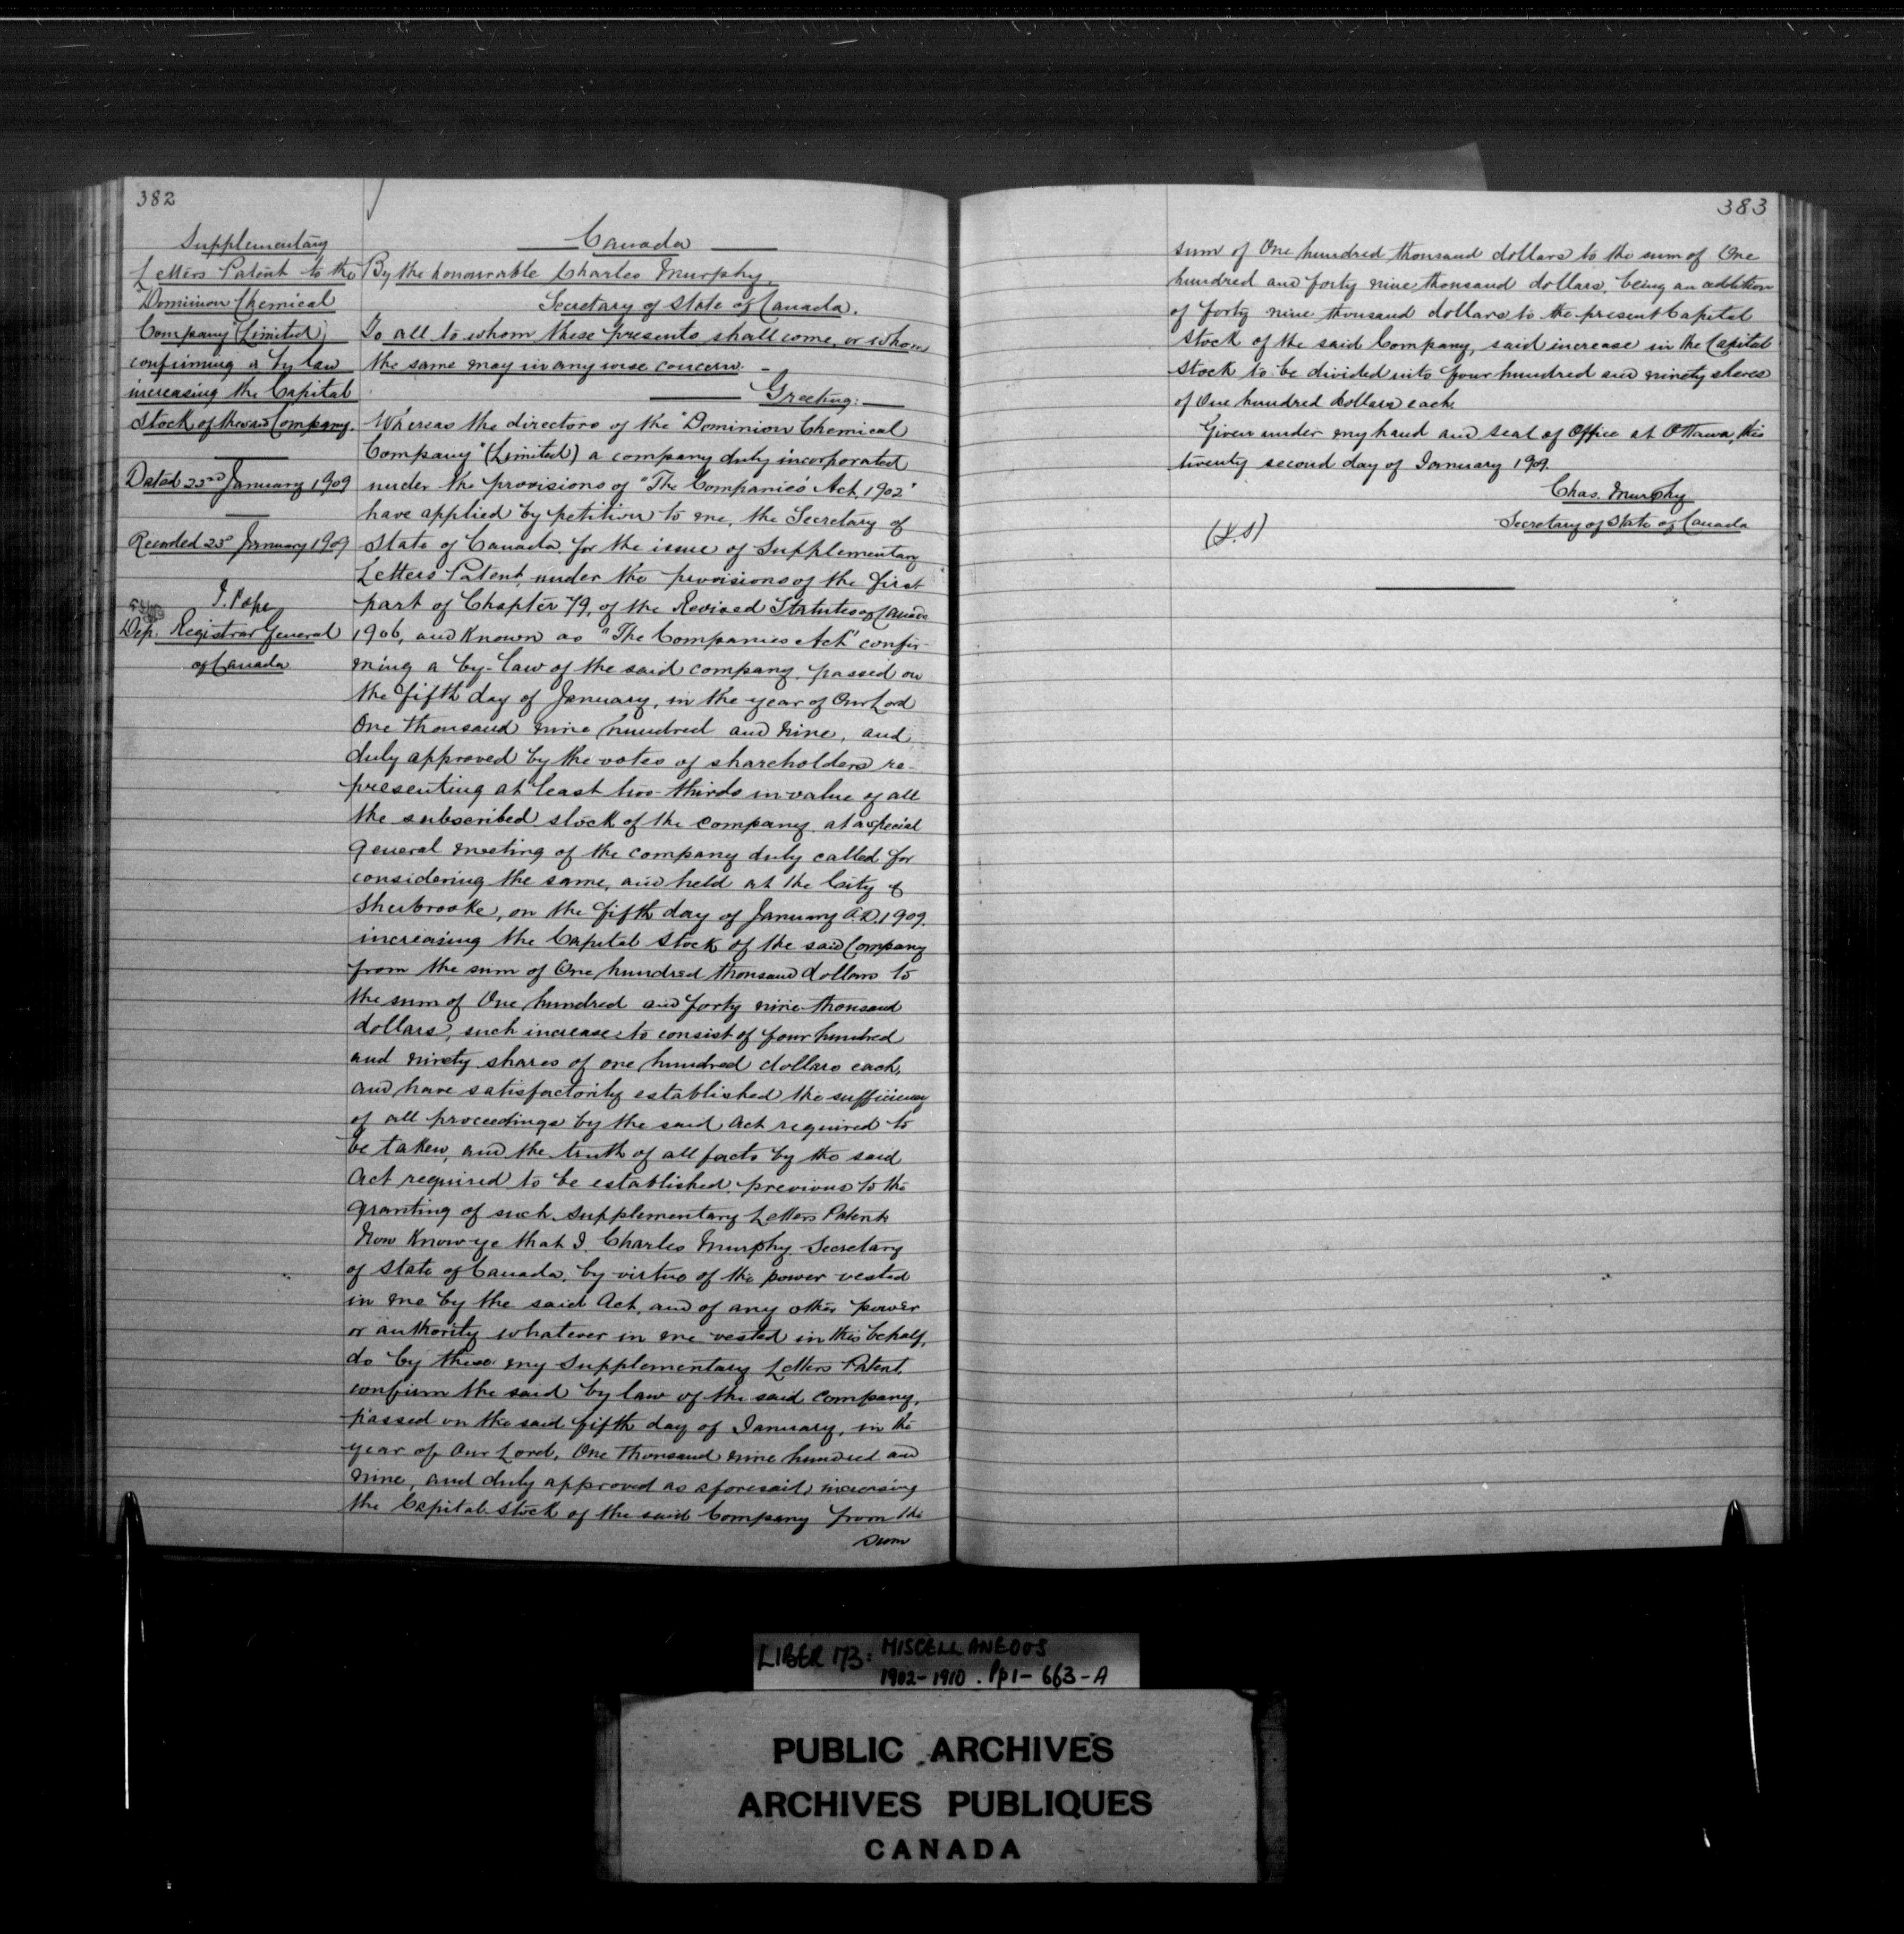 382
Supplementary
Letters Patent to the
"Dominion Chemical
Company" (Limited)
confirming a by law
increasing the Capital
Stock of the said Company.
Dated 22nd January 1909
Recorded 23d January 1909
J. Pope
Dep. Registrar General
of Canada
Canada
By the honourable Charles Murphy,
Secretary of State of Canada.
To all to whom these presents shall come, or whom
the same may in any wise concern. -
Greeting:
Whereas the directors of the "Dominion Chemical
Company" (Limited) a company duly incorporated
under the provisions of "The Companies' Act, 1902"
have applied by petition to me, the Secretary of
State of Canada for the issue of Supplementary
Letters Patent, under the provisions of the first
part of Chapter 79, of the Revised Statutes of Canada
1906, and known as "The Companies Act" confir-
ming a by-law of the said company, passed on
the fifth day of January, in the year of Our Lord
One thousand nine hundred and nine, and
duly approved by the votes of shareholders re-
presenting at least two-thirds in value of all
the subscribed stock of the company, at a special
general meeting of the company duly called for
considering the same, and held at the City of
Sherbrooke, on the fifth day of January A.D. 1909.
increasing the Capital Stock of the said Company
from the sum of One hundred thousand dollars to
the sum of One hundred and forty nine thousand
dollars, such increase to consist of four hundred
and ninety shares of one hundred dollars each,
and have satisfactorily established the sufficiency
of all proceedings by the said Act required to
be taken, and the truth of all facts by the said
Act required to be established previous to the
granting of such Supplementary Letters Patent.
Now Know ye that I, Charles Murphy Secretary
of State of Canada, by virtue of the power vested
in me by the said Act, and of any other power
or authority whatever in me vested in this behalf,
do by these my Supplementary Letters Patent,
confirm the said by law of the said company,
passed on the said fifth day of January, in the
year of Our Lord, One thousand nine hundred and
nine, and duly approved as aforesaid, increasing
the Capital Stock of the said Company from the
sum
383
sum of One hundred thousand dollars to the sum of One
hundred and forty nine thousand dollars, being an addition
of forty nine thousand dollars to the present Capital
Stock of the said Company, said increase in the Capital
Stock to be divided into four hundred and ninety shares
of One hundred dollars each.
Given under my hand and seal of Office at Ottawa, this
twenty second day of January 1909.
Chas. Murphy
Secretary of State of Canada
(L.S)
LIBER 173: MISCELLANEOUS
1902-1910. Pp 1-663-A
PUBLIC ARCHIVES
ARCHIVES PUBLIQUES
CANADA